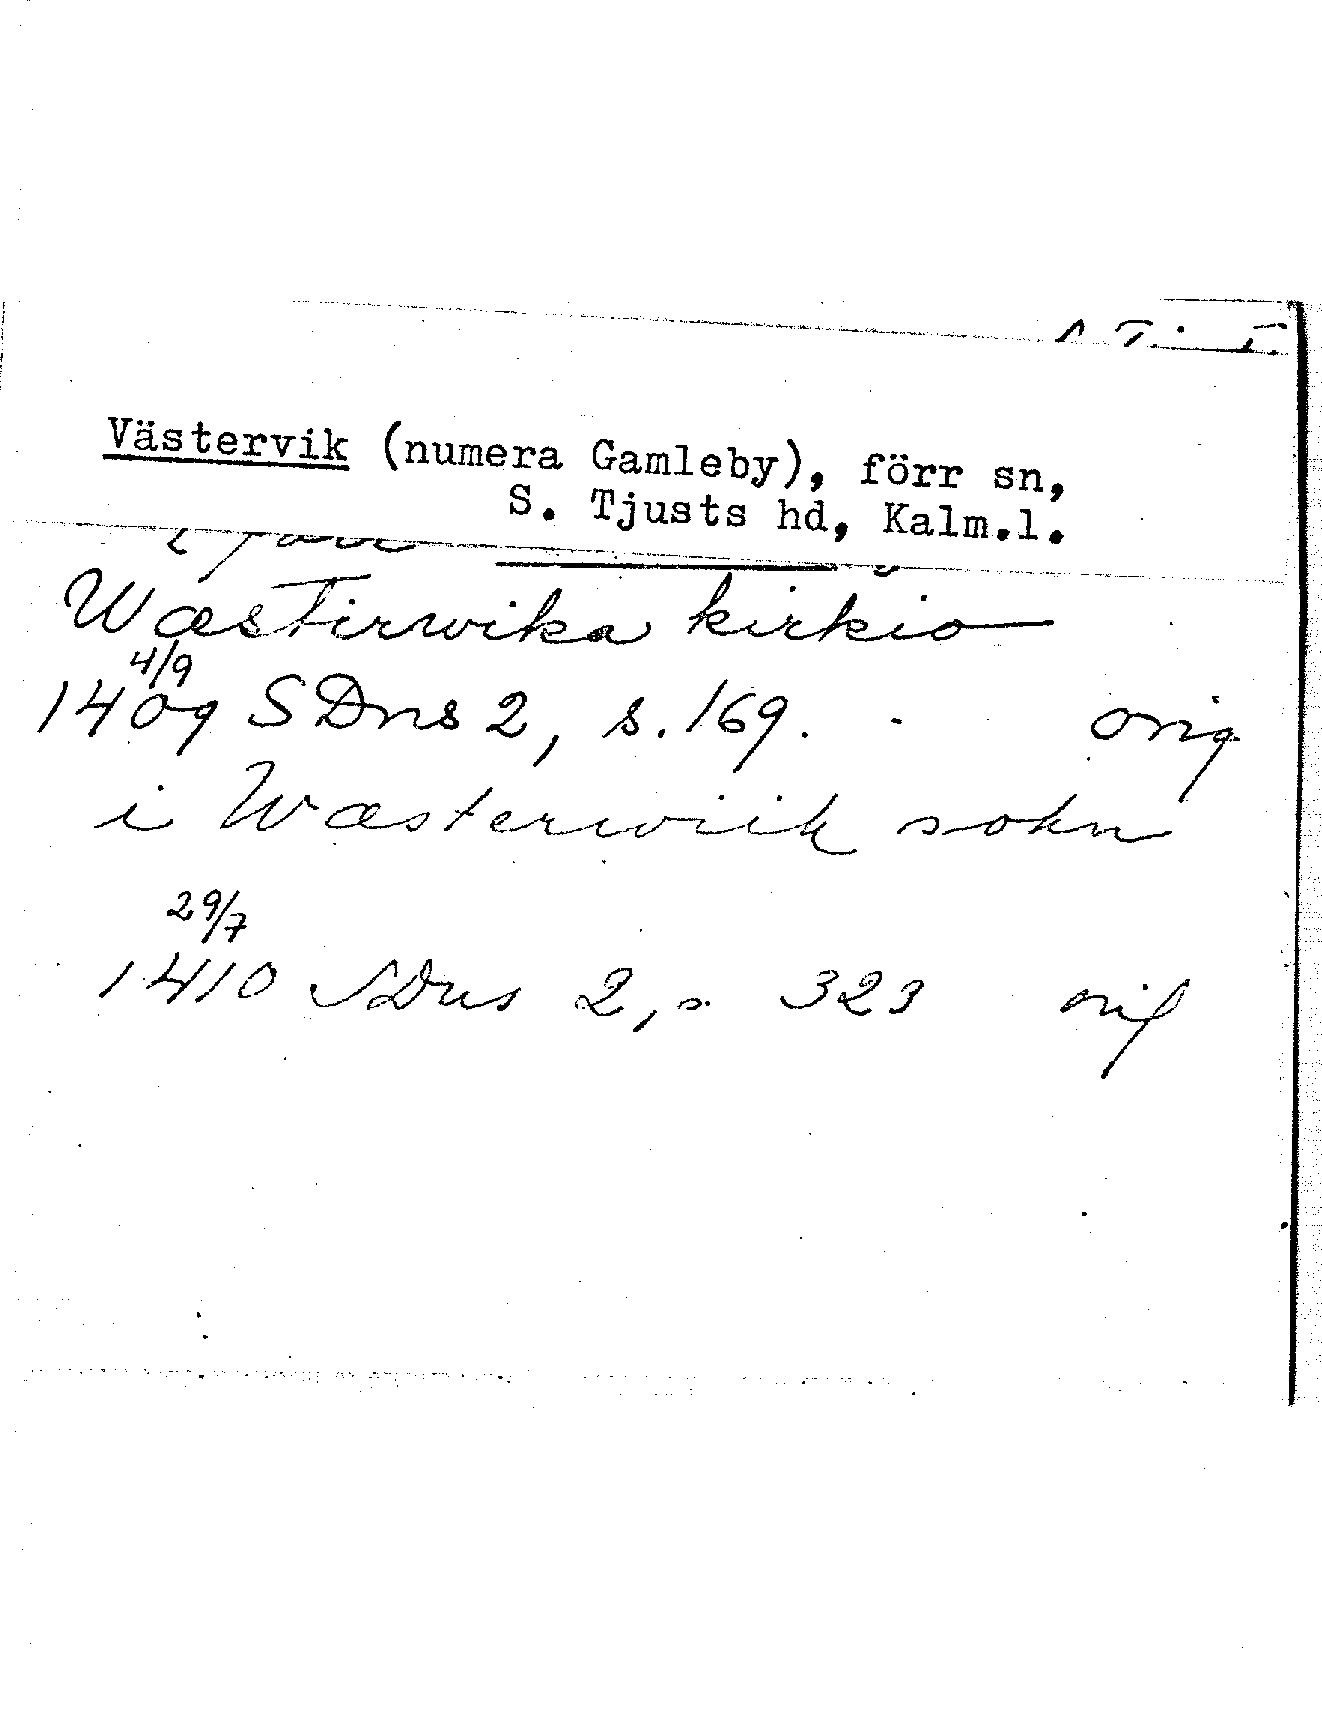 Västervik (numera Gamleby), förr sn,
S. Tjusts hd, Kalm.l.
Wæstirwika kirkio
4/9
1409 SDns 2, s. 169. orig
i Wæsterwiik sokn
29/7
1410 SDns 2, s. 323 orig